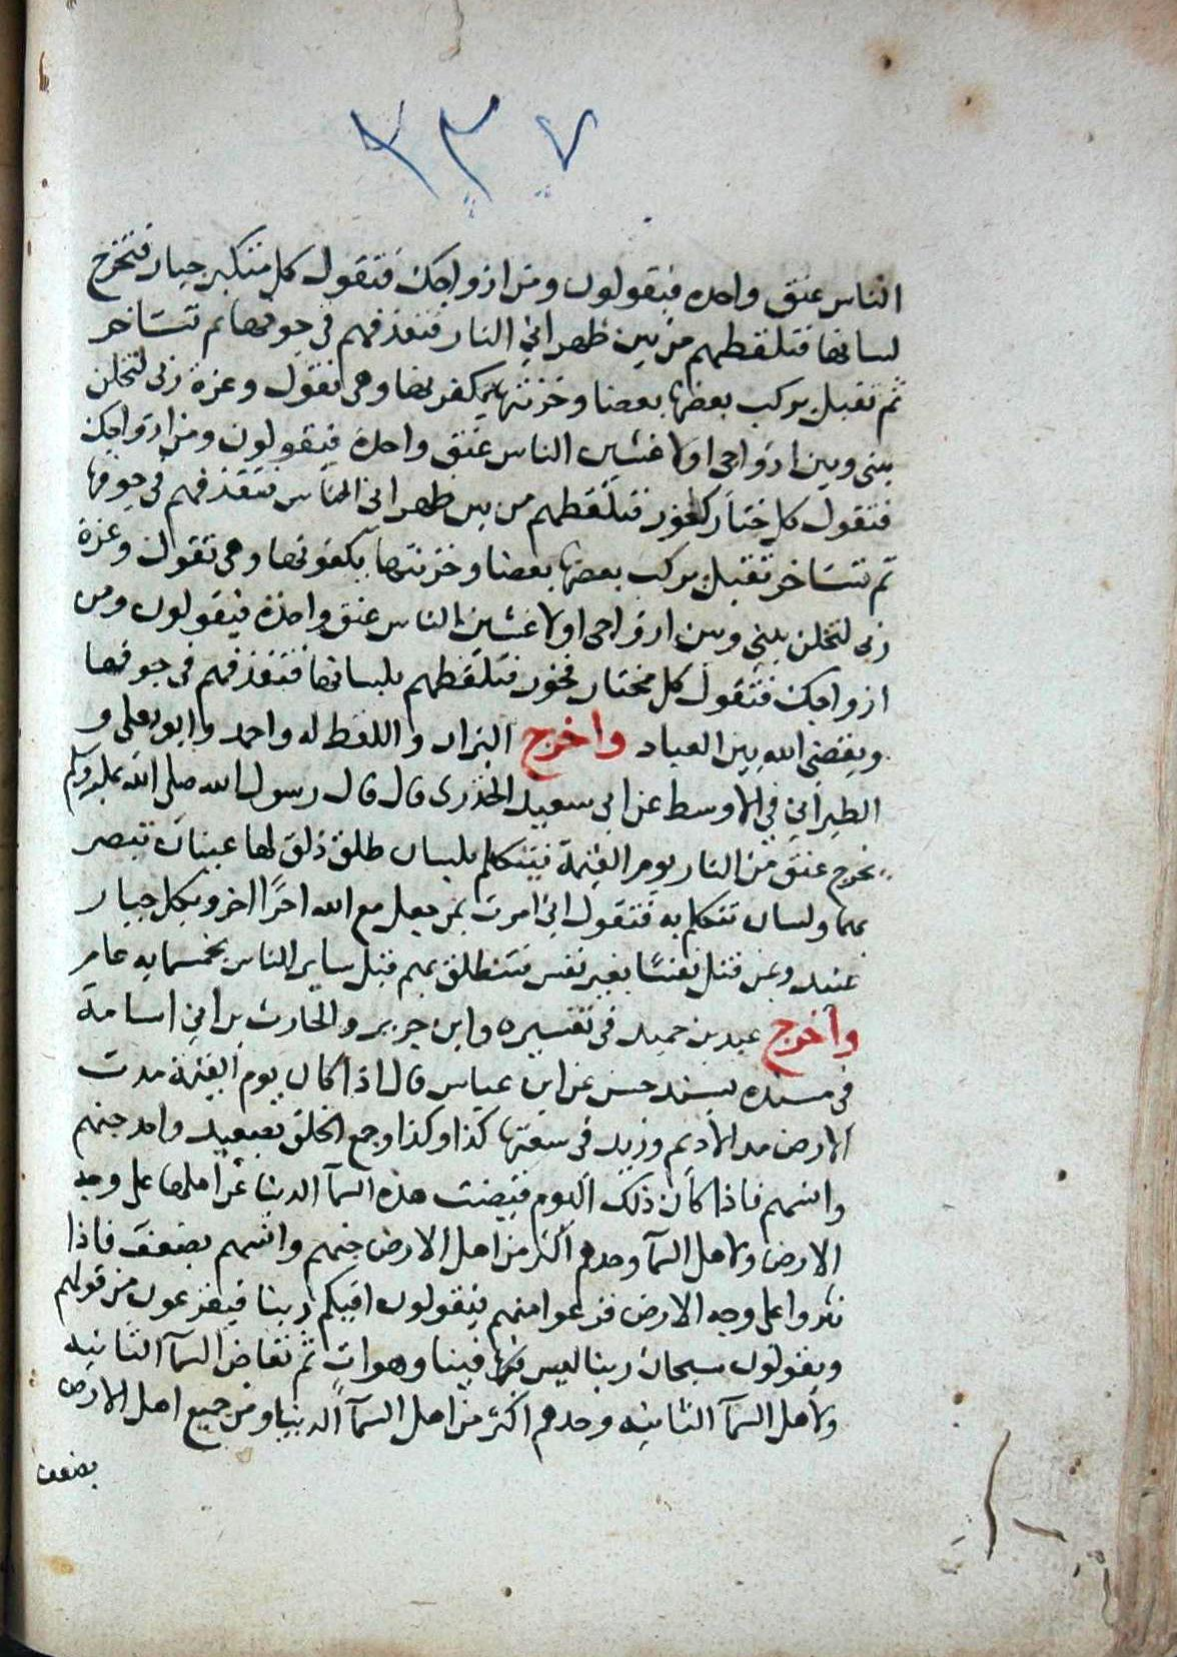 ٢٣٧
الناس عنق واحده فيقولون ومن ازواجك فتقول كل متكبر جبار فتخرج
لسانها فتلقطهم من بين ظهراني النار فتقذفهم في جوفها ثم تتساخر
ثم تقبل يركب بعضها بعضا وخزنتها يكفونها وهي تقول وعزة ربي لتخلن
بيني وبين ازواجي اولا غشين الناس عنق واحدة فيقولون ومن ازواجك
فتقول كل ختار كفور فتلقطهم من بين ظهراني الناس فتقذفهم في جوفها
ثم تتساخر تقبل يركب بعضها بعضا وخزنتها يكفونها وهي تقول وعزة
ربي لتخلن بيني وبين ازواجي اولا غشين الناس عنق واحدة فيقولون ومن
ازواجك فتقول كل مختار فخور فتلقطهم بلسانها فتقذفهم في جوفها
ويقضي الله بين العباد واخرج البزار واللفظ له واحمد وابو يعلى و
الطبراني في الاوسط عن ابي سعيد الخدري قال قال رسول الله صلى الله عليه وسلم
يخرج عنق من النار يوم القيمة فيتكلم بلسان طلق ذلق لها عينان تبصر
بهما ولسان تتكلم به فتقول اني امرت بمن جعل مع الله احرًا اخر وبكل جبار
عنيد وبمن قتل نفسًا بغير نفس فتنطلق بهم قبل ساير الناس بخمسمايه عام
واخرج عبد بن حميد في تفسيره وابن جرير والحارث بن ابي اسامة
في مسنده بسند حسن عن ابن عباس قال اذا كان يوم القيمة مدت
الارض مد الاديم وزيد في سعتها كذا وكذا وجمع الخلق بصعيد واحد جنهم
وانسهم فاذا كان ذلك اليوم قيضت هذه السمآ الدنيا عن اهلها على وجه
الارض ولاهل السمآ وحدهم اكثر من اهل الارض جنهم وانسهم بضعف فاذا
نثروا على وجه الارض فزعوا منهم فيقولون افيكم ربنا فيفزعون من قولهم
ويقولون سبحان ربنا ليس فينا وهو ات ثم تقاض السمآ الثانيه
ولاهل السمآ الثانيه وحدهم اكثر من اهل السمآ الدنيا ومن جميع اهل الارض
بضعف